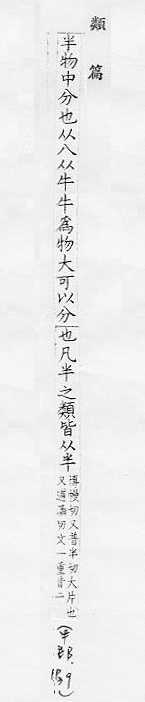 類篇
半物中分也从八从牛牛爲物大可以分也凡半之類皆从半
博慢切又普半切大片也
又逋潘切文一重音二
(半部.